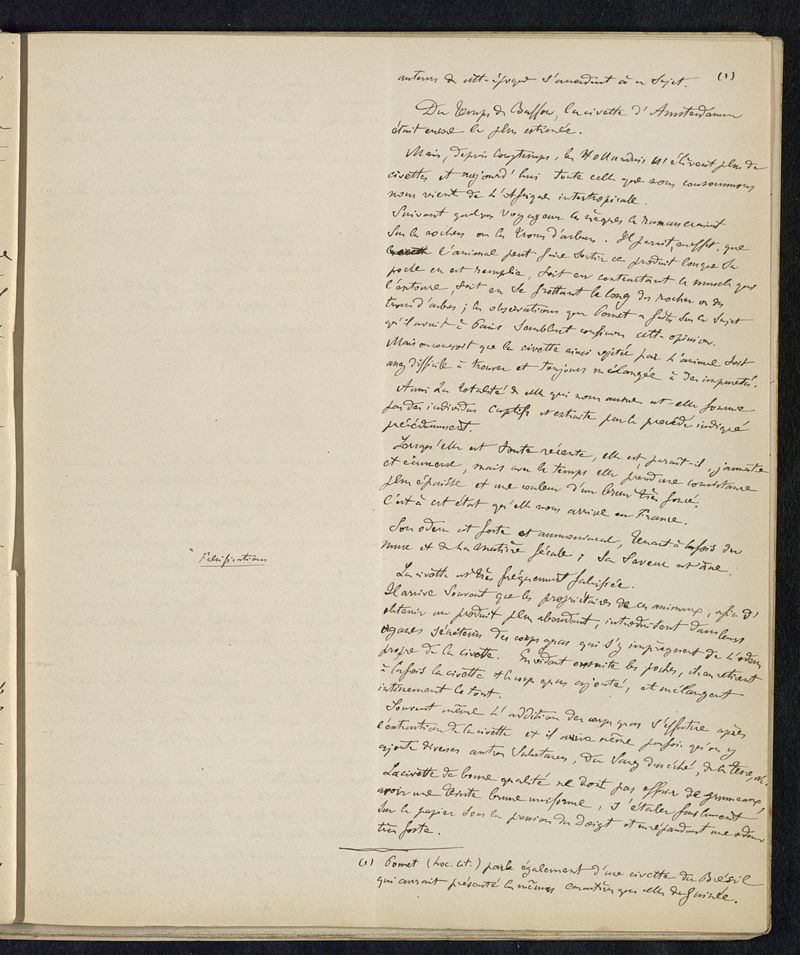 auteurs de cette époque s'accordent à ce sujet. (1)
Du temps de Buffon, la civette d'Amsterdam
était encore la plus estimée.
Mais, depuis longtemps, les Hollandais n'élèvent plus de
civettes et aujourd'hui toute celle que nous consommons
nous vient de l'Afrique intertropicale.
Suivant quelques voyageurs les nègres la ramasseraient
sur les rochers ou les troncs d'arbres. Il paraît, en effet, que
l'animal peut faire sortir ce produit lorsque sa
poche en est remplie, soit en contractant le muscle qui
l'entoure, soit en se frottant le long des rochers ou des
troncs d'arbres ; les observations que Pomet a faites sur le sujet
qu'il avait à Paris semblent confirmer cette opinion.
Mais on conçoit que la civette ainsi rejetée par l'animal soit
assez difficile à trouver et toujours mélangée à des impuretés.
Aussi la totalité de celle qui nous arrive est elle fournie
par des individus captifs et extraite par le procédé indiqué
précédemment.
Lorsqu'elle est toute récente, elle est, paraît-il, jaunâtre
et écumeuse, mais avec le temps elle prend une consistance
plus épaisse et une couleur d'un brun très foncé.
C'est à cet état qu'elle nous arrive en France.
Son odeur est forte et ammoniacal, tenant à la fois du
musc et de la matière fécale ; sa saveur est âcre.
Falsifications
La civette est très fréquemment falsifiée.
Il arrive souvent que les propriétaires de ces animaux, afin d'
obtenir un produit plus abondant, introduisent dans leurs
organes sécréteurs des corps gras qui s'y imprègnent de l'odeur
propre de la civette. En vidant ensuite les poches, ils en retirent
à la fois la civette et le corps gras ajouté, et mélangent
intimement le tout.
Souvent même l'addition des corps gras s'effectue après
l'extraction de la civette et il arrive même parfois qu'on y
ajoute diverses autres substances, du sang desséché, de la terre, etc.
La civette de bonne qualité ne doit pas offrir de grumeaux,
avoir une teinte brune uniforme, s'étaler facilement
sur le papier sous la pression du doigt et en répandant une odeur
très forte.
(1) Pomet (Loc. cit.) parle également d'une civette du Brésil
qui aurait présenté les mêmes caractères que celle de Guinée.